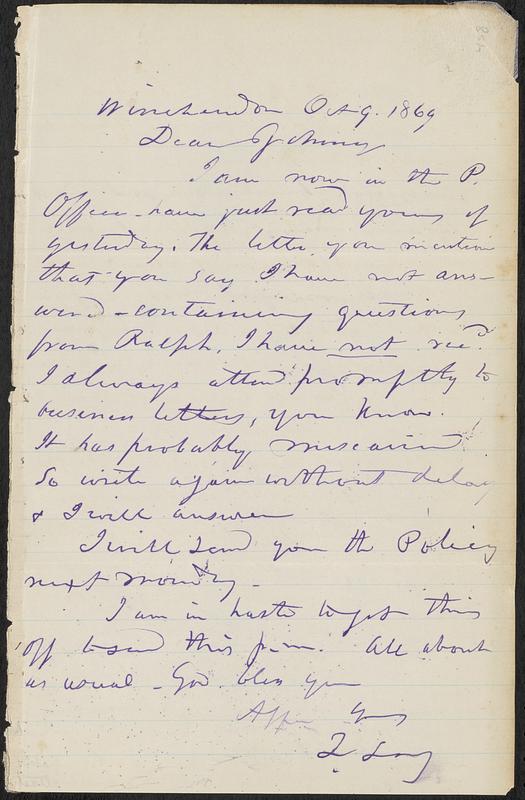 Winchendon Oct 9. 1869
Dear Johnny
I am now in the P.
Office - have just read yours of
yesterday. The letter you mention
that you say I have not ans-
wered - containing questions
from Ralph, I have not rec'd.
I always attend promptly to
business letters, you know.
It has probably miscarried.
So write again without delay
& I will answer
I will send you the Policy
next Monday -
I am in haste to get this
off to send this p.m. All about
as usual - God bless you
Affec Yrs
Z Long